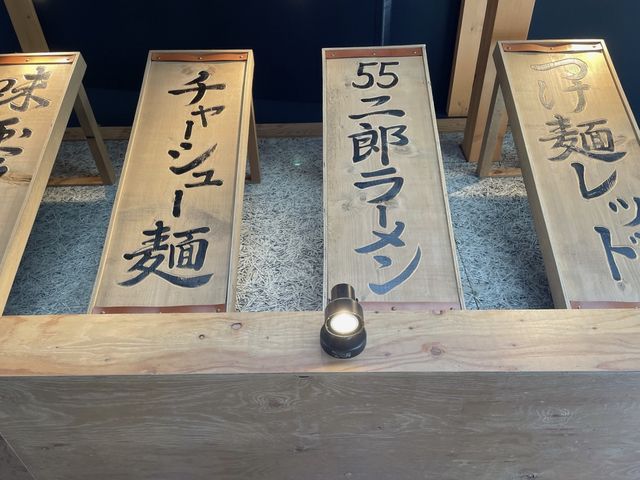 味玉
チャーシュー麺
55二郎ラーメン
つけ麺レッド